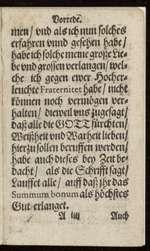 Vorrede.
men / vnd als ich nun solches
erfahren vnnd gesehen habe /
habe ich solche meine grosse Lie-
be vnd grossen verlangen / wel-
che ich gegen ewer Hocher-
leuchte Fraternitet habe / nicht
können noch vermögen ver-
halten / dieweil vns zugesagt /
daß alle die GOTT fürchten /
Weißheit vnd Warheit lieben /
hierzu sollen beruffen werden /
habe auch dieses bey Zeit be-
dacht / als die Schrifft sagt /
Lauffet alle / auff daß jhr das
Summum bonum als höchstes
Gut erlanget.
A iiij Auch